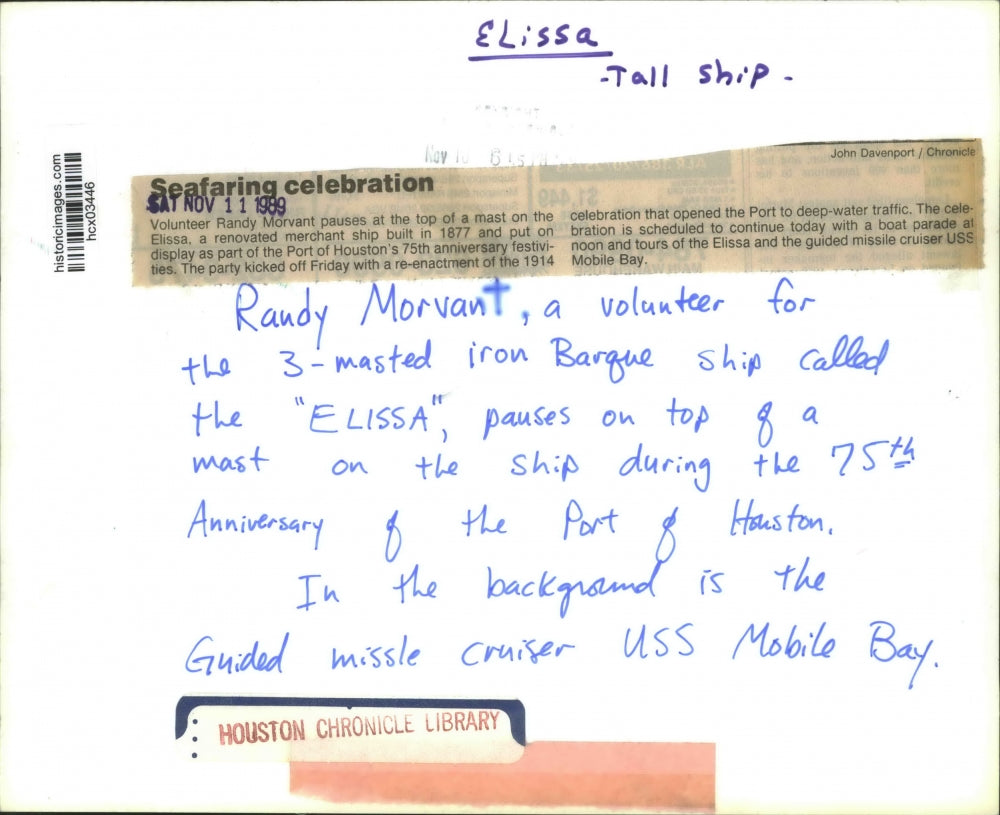 ELissa
-Tall ship-
Nov 10
historicimages.com
hcx03446
John Davenport / Chronicle
Seafaring celebration
SAT NOV 11 1989
Volunteer Randy Morvant pauses at the top of a mast on the
Elissa, a renovated merchant ship built in 1877 and put on
display as part of the Port of Houston's 75th anniversary festivi-
ties. The party kicked off Friday with a re-enactment of the 1914
celebration that opened the Port to deep-water traffic. The cele-
bration is scheduled to continue today with a boat parade at
noon and tours of the Elissa and the guided missile cruiser USS
Mobile Bay.
Randy Morvant, a volunteer for
the 3-masted iron Barque ship called
the "ELISSA", pauses on top of a
mast on the ship during the 75th
Anniversary of the Port of Houston.
In the background is the
Guided missle cruiser USS Mobile Bay.
HOUSTON CHRONICLE LIBRARY